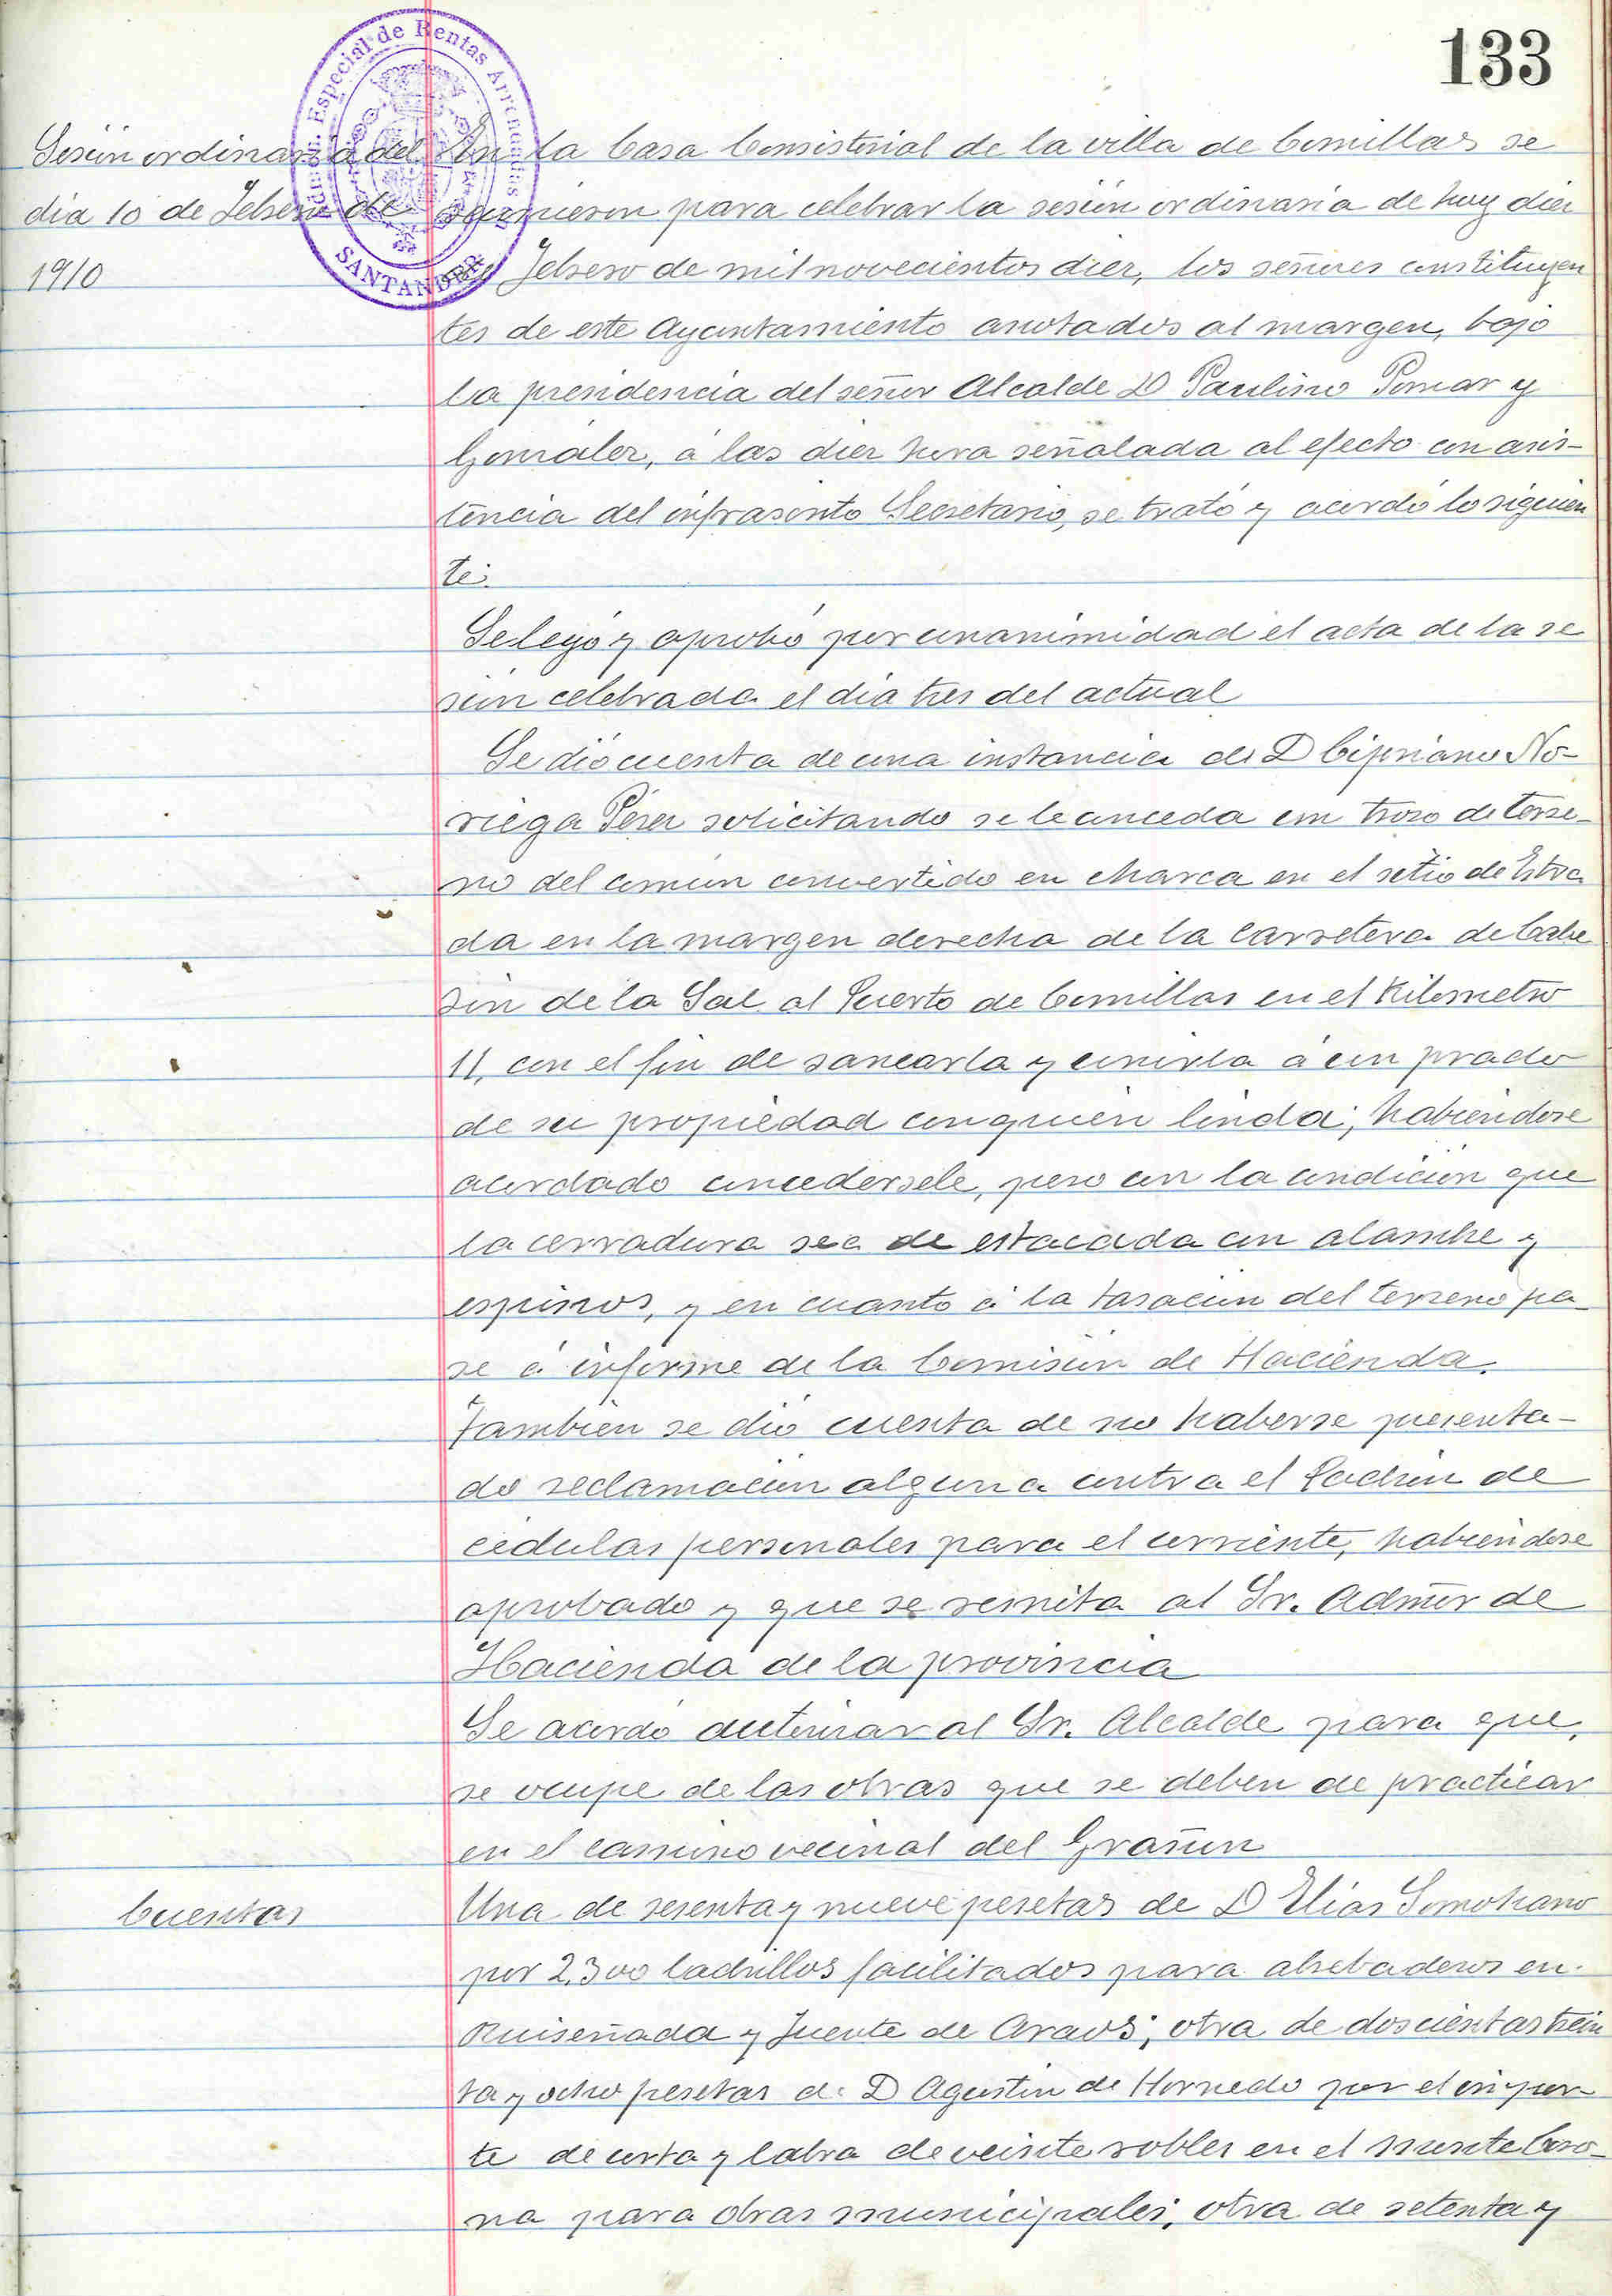 133
Admón. Especial de Rentas Arrendadas
SANTANDER
Sesión ordinaria del
dia 10 de Febrero de
1910
En la Casa Consistorial de la villa de Comillas se
reunieron para celebrar la sesión ordinaria de hoy diez
de Febrero de mil novecientos diez, los señores constituyen
tes de este Ayuntamiento anotados al margen, bajo
la presidencia del señor Alcalde D Paulino Pomar y
González, á las diez hora señalada al efecto con asis-
tencia del infrascrito Secretario, se trató y acordó lo siguien
te:
Se leyó y aprobó por unanimidad el acta de la se
sión celebrada el dia tres del actual
Se dió cuenta de una instancia de D Cipriano No-
riega Pérez solicitando se le conceda un trozo de terre-
no del común convertido en charca en el sitio de Estra
da en la margen derecha de la carretera de Cabe
zón de la Sal al Puerto de Comillas en el Kilometro
11, con el fin de sanearla y unirla á un prado
de su propiedad con quien linda; habiendose
acordado concedersele, pero con la condición que
la cerradura sea de estacada con alambre y
espinos, y en cuanto á la tasación del terreno pa
se á informe de la Comisión de Hacienda.
También se dió cuenta de no haberse presenta-
do reclamación alguna contra el Padrón de
cédulas personales para el corriente, habiendose
aprobado y que se remita al Sr. Admor de
Hacienda de la provincia
Se acordó autorizar al Sr. Alcalde para que,
se ocupe de las obras que se deben de practicar
en el camino vecinal del Grañón
Cuentas
Una de sesenta y nueve pesetas de D Elias Somohano
por 2,300 ladrillos facilitados para abrebaderos en
Ruiseñada y Fuente de Araos; otra de doscientas trein
ta y ocho pesetas de D Agustín de Hornedo por el impor-
te de corta y labra de veinte robles en el monte Coro-
na para obras municipales; otra de setenta y